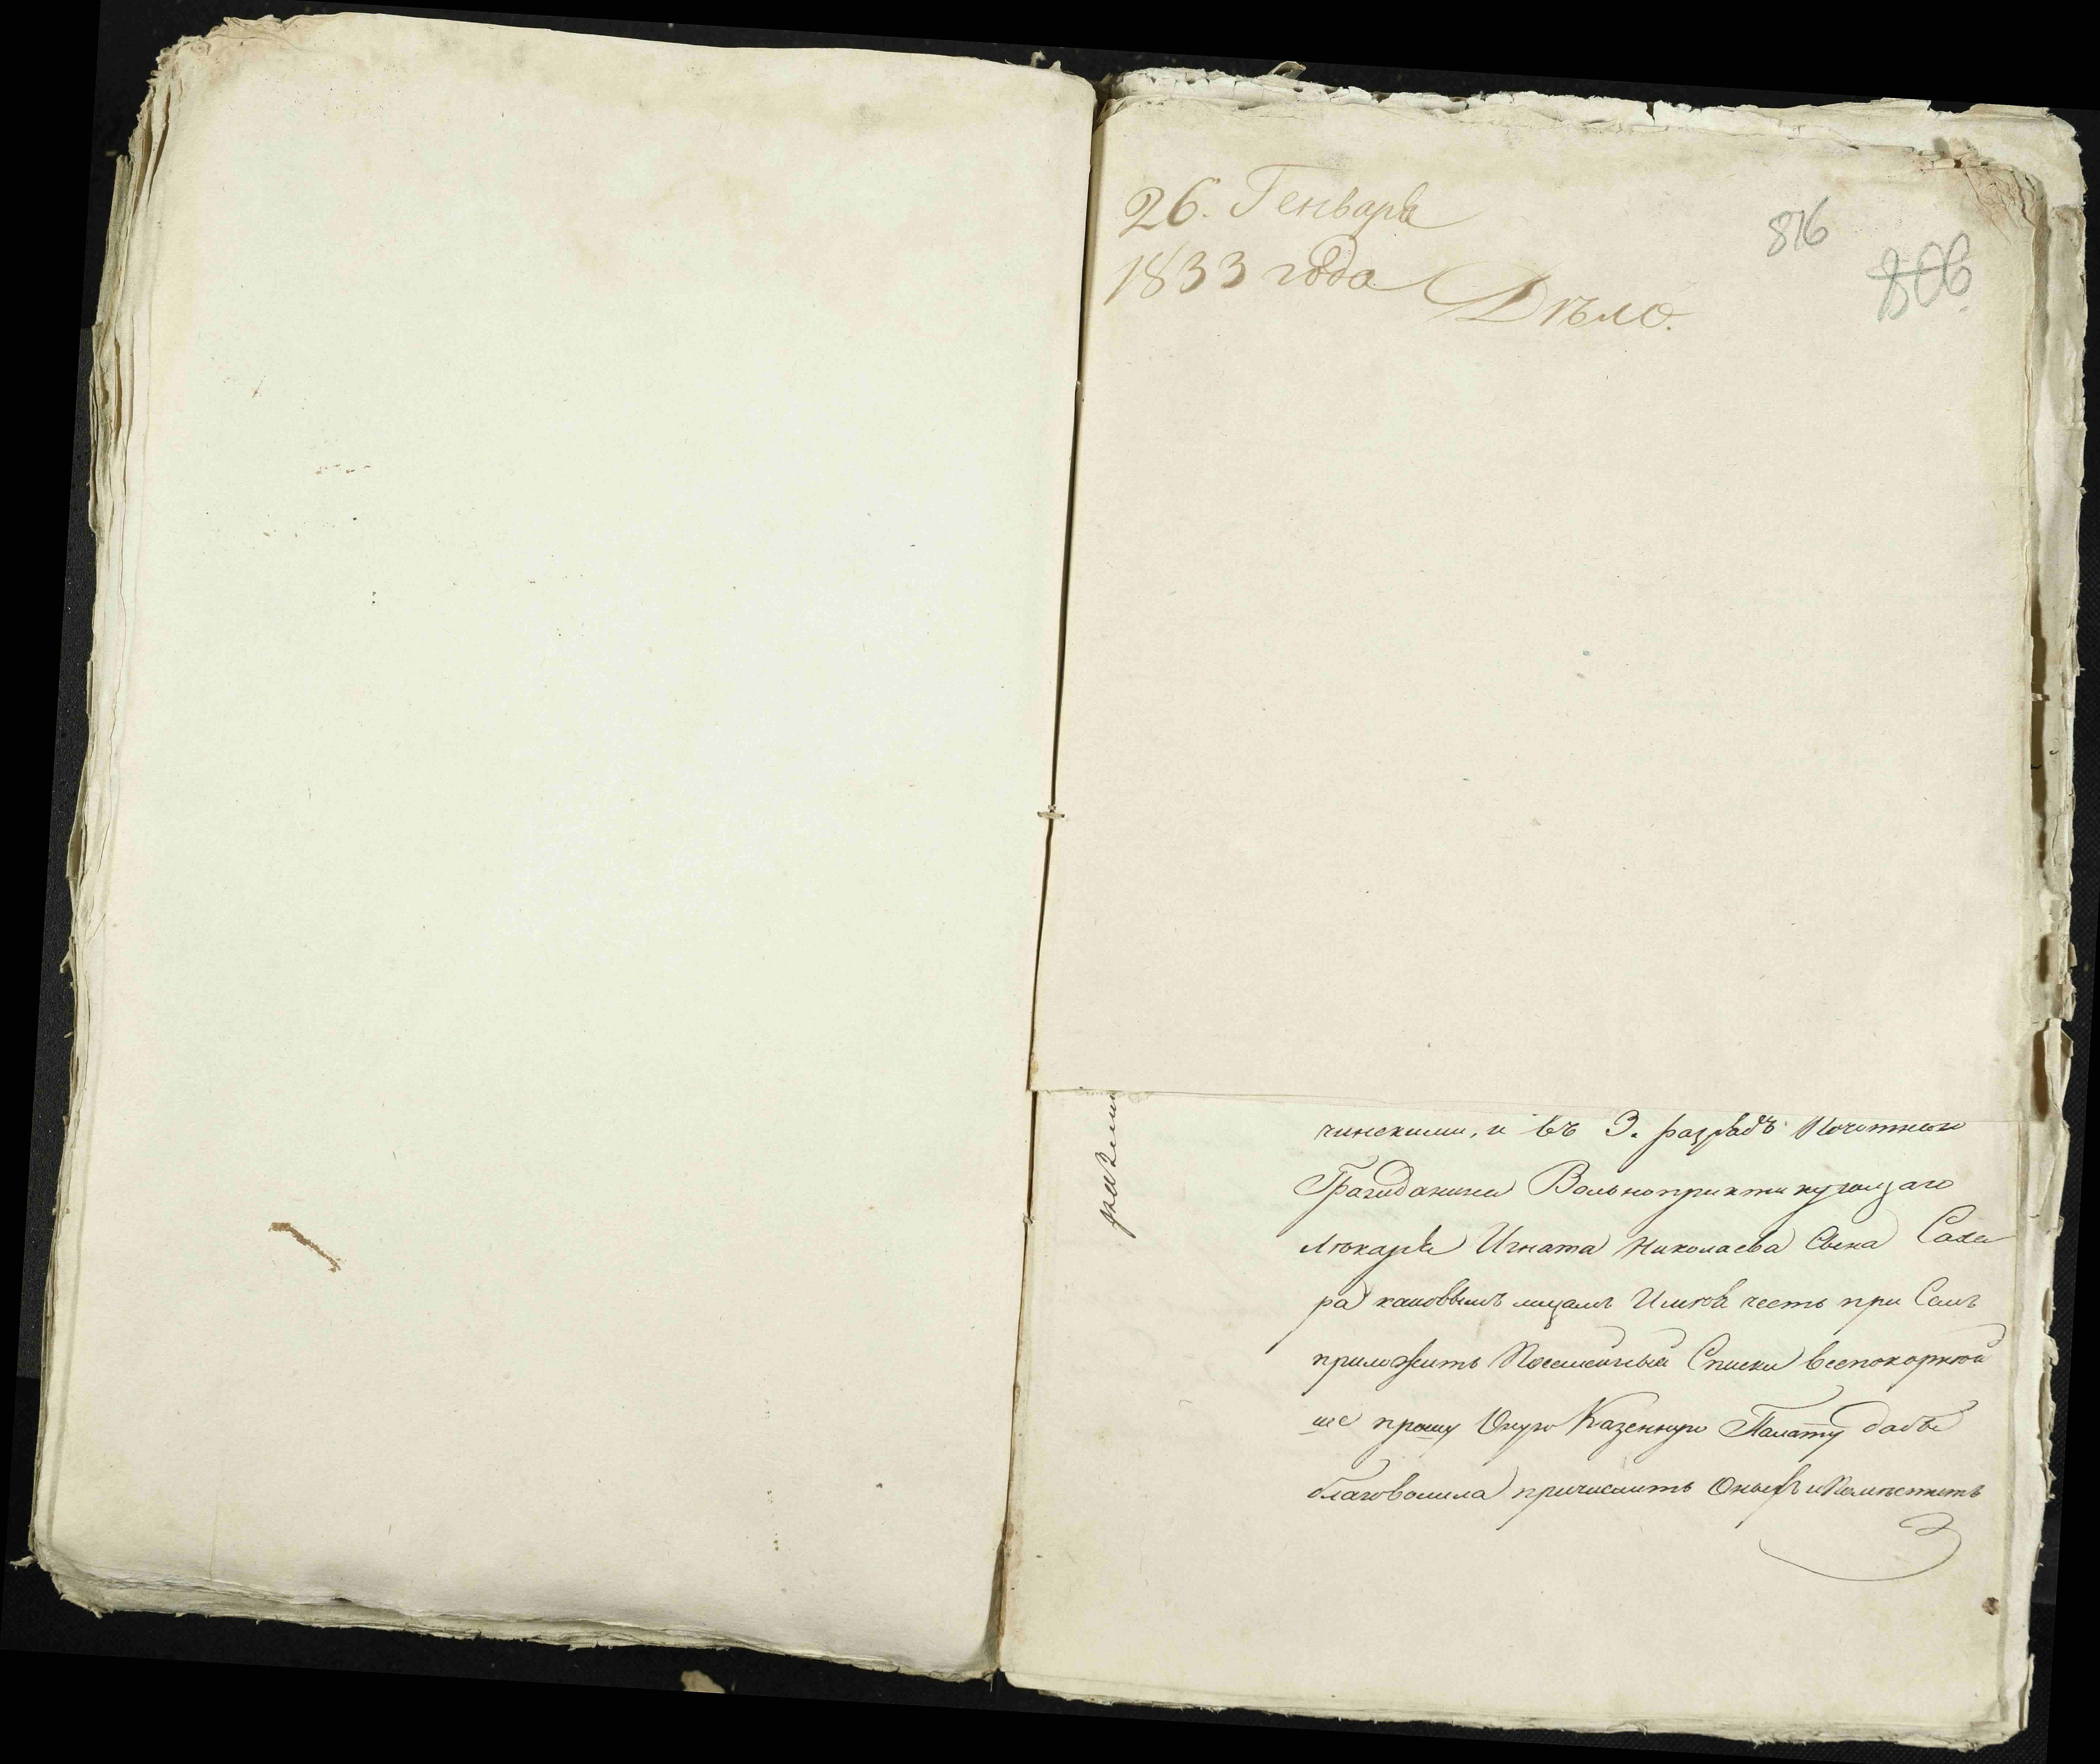 26. Генваря
1833 года
Дѣло.
816
806
чинскими, и въ 3. разрядъ Почотнаго
Гражданина Вольнопрактикующаго
Лѣкаря Игната Николаева Сына Саха
ра каковымъ лицамъ Имѣя честь при Семъ
приложить Посемейный Списки всепокорнѣй
ше прошу Оную Казенную Палату дабы
благоволила причислить Оныхъ и Помѣстить